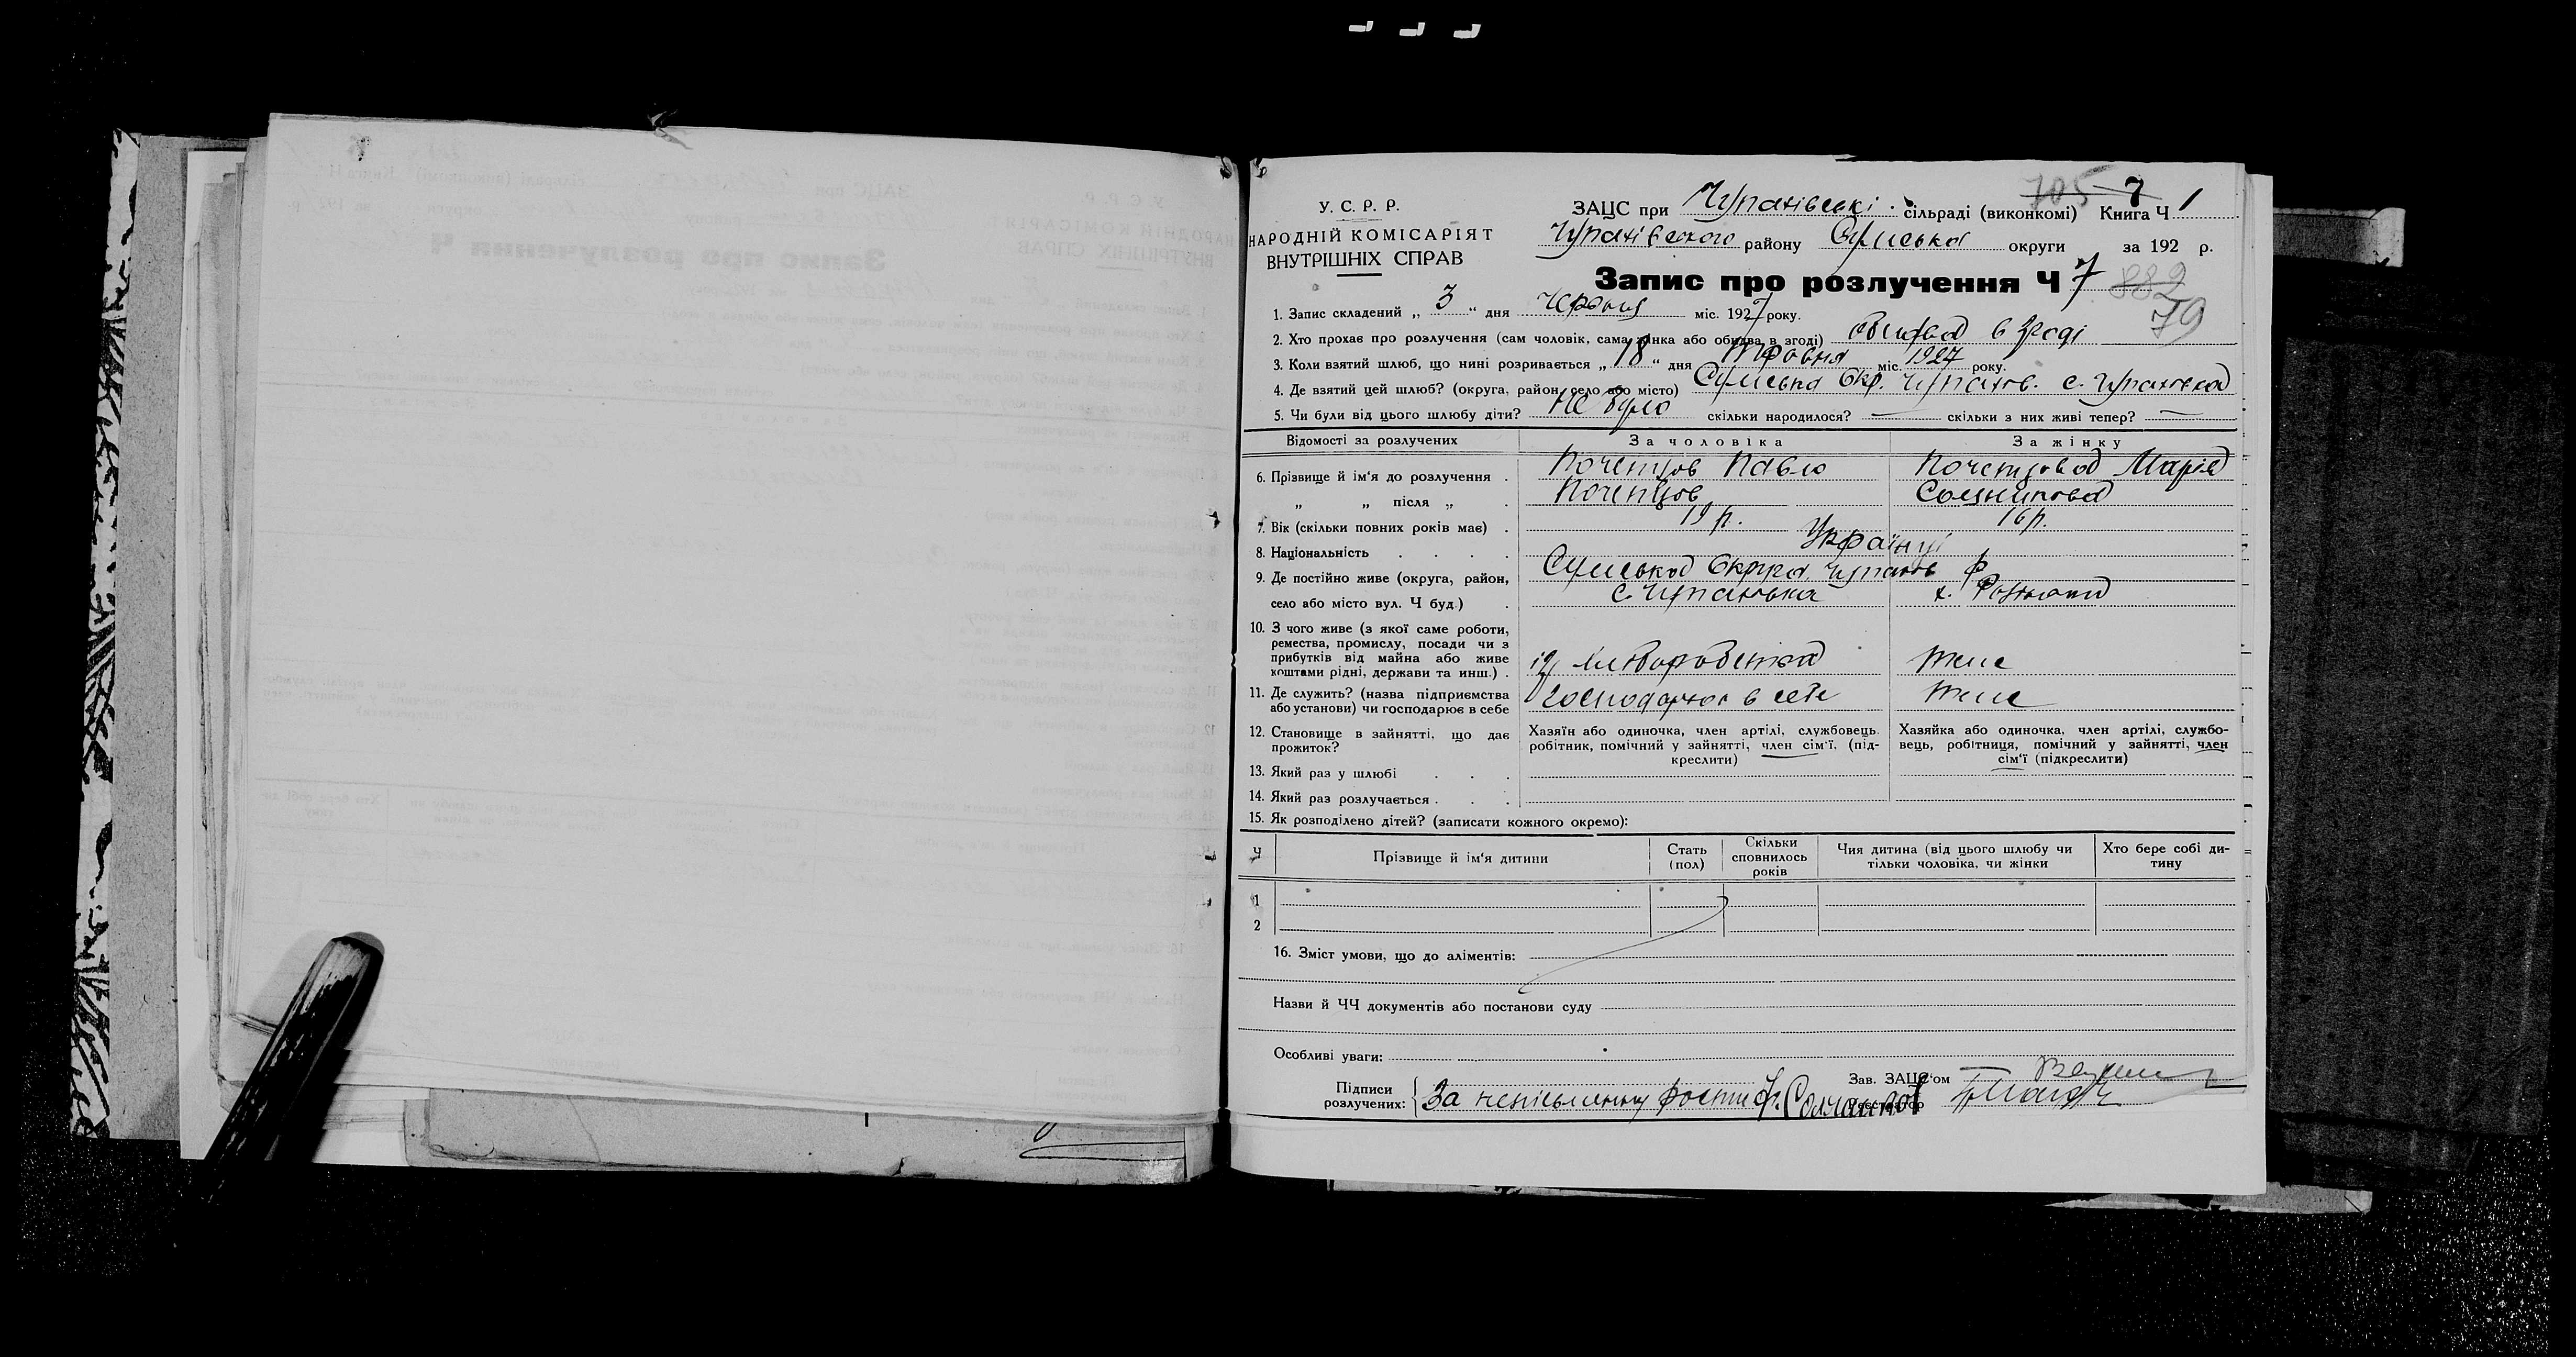 705 7
У. С. Р. Р.
НАРОДНІЙ КОМІСАРІЯТ
ВНУТРІШНІХ СПРАВ
ЗАЦС при Чупахівські сільраді (виконкомі) Книга Ч 1
Чупахівского району Сумська округи за 192 р.
Запис про розлучення Ч 7 882
79
1. Запис складений „ 3 “ дня Червня міс. 1927 року.
2. Хто прохає про розлучення (сам чоловік, сама жінка або обидва в згоді) обидва в згоді
3. Коли взятий шлюб, що нині розривається „ 18 “ дня травня міс. 1927 року.
4. Де взятий цей шлюб? (округа, район, село або місто) Сумська Окр. Чупахов. с. Чупаховка
5. Чи були від цього шлюбу діти? не було скільки народилося? — скільки з них живі тепер? —
Відомості за розлучених За чоловіка За жінку
6. Прізвище й ім'я до розлучення . Поченцов Павло Поченцова Марія
„ „ після „ . Поченцов
7. Вік (скільки повних років має) . 19 р. 16 р.
8. Національність . . . . Українці
9. Де постійно живе (округа, район, Сумська Округа, Чупахов
село або місто вул. Ч буд.) . с. Чупаховка х.
10. З чого живе (з якої саме роботи,
ремества, промислу, посади чи з
прибутків від майна або живе
коштами рідні, держави та инш.) . із хліборобства теж
11. Де служить? (назва підприємства
або установи) чи господарює в себе в себе теж
12. Становище в зайнятті, що дає
прожиток?
Хазяїн або одиночка, член артілі, службовець.
робітник, помічний у зайнятті, член сім'ї, (під-
креслити)
Хазяйка або одиночка, член артілі, службо-
вець, робітниця, помічний у зайнятті, член
сім'ї (підкреслити)
13. Який раз у шлюбі . . .
14. Який раз розлучається . . .
15. Як розподілено дітей? (записати кожного окремо):
Ч Прізвище й ім'я дитини Стать (пол) Скільки сповнилось років Чия дитина (від цього шлюбу чи тільки чоловіка, чи жінки Хто бере собі ди-тину
1
2
16. Зміст умови, що до аліментів:
Назви й ЧЧ документів або постанови суду
Особливі уваги:
Зав. ЗАЦС'ом
Підписи
розлучених: За неписьменну